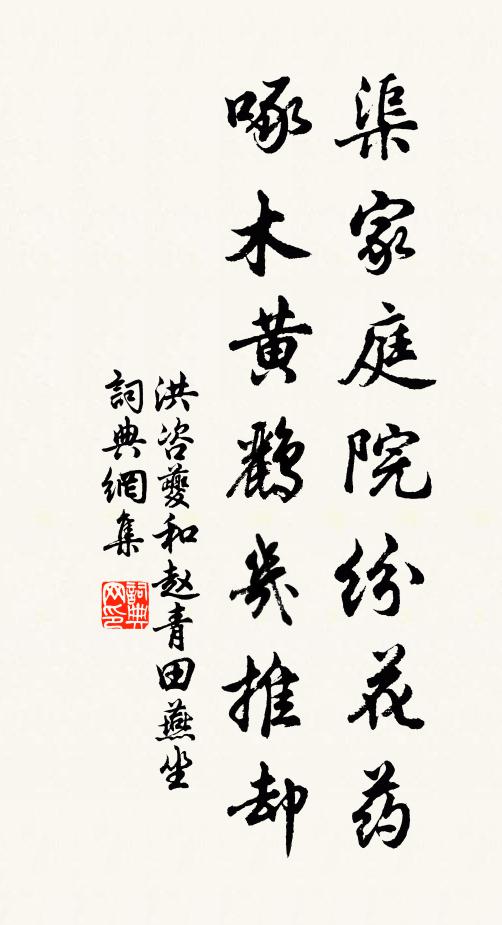 渠家庭院纷花药
啄木黄鹂几推却
洪咨夔和赵青田燕坐
詞典網集
詞典网印